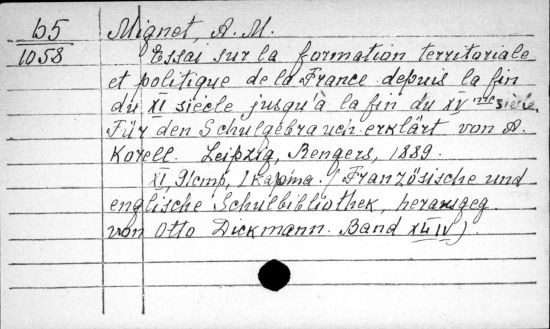 b5 Mignet, A. M.
1058 Essai sur la formation territoriale
et politique de la France depuis la fin
du XI siècle jusqu'à la fin du XV me siècle.
Für den Schulgebrauch erklärt von A.
Korell. Leipzig, Rengers, 1889.
XI, 91 стр., 1 карта. (Französische und
englische Schulbibliothek, herausgeg.
von Otto Dickmann. Band XLIV).